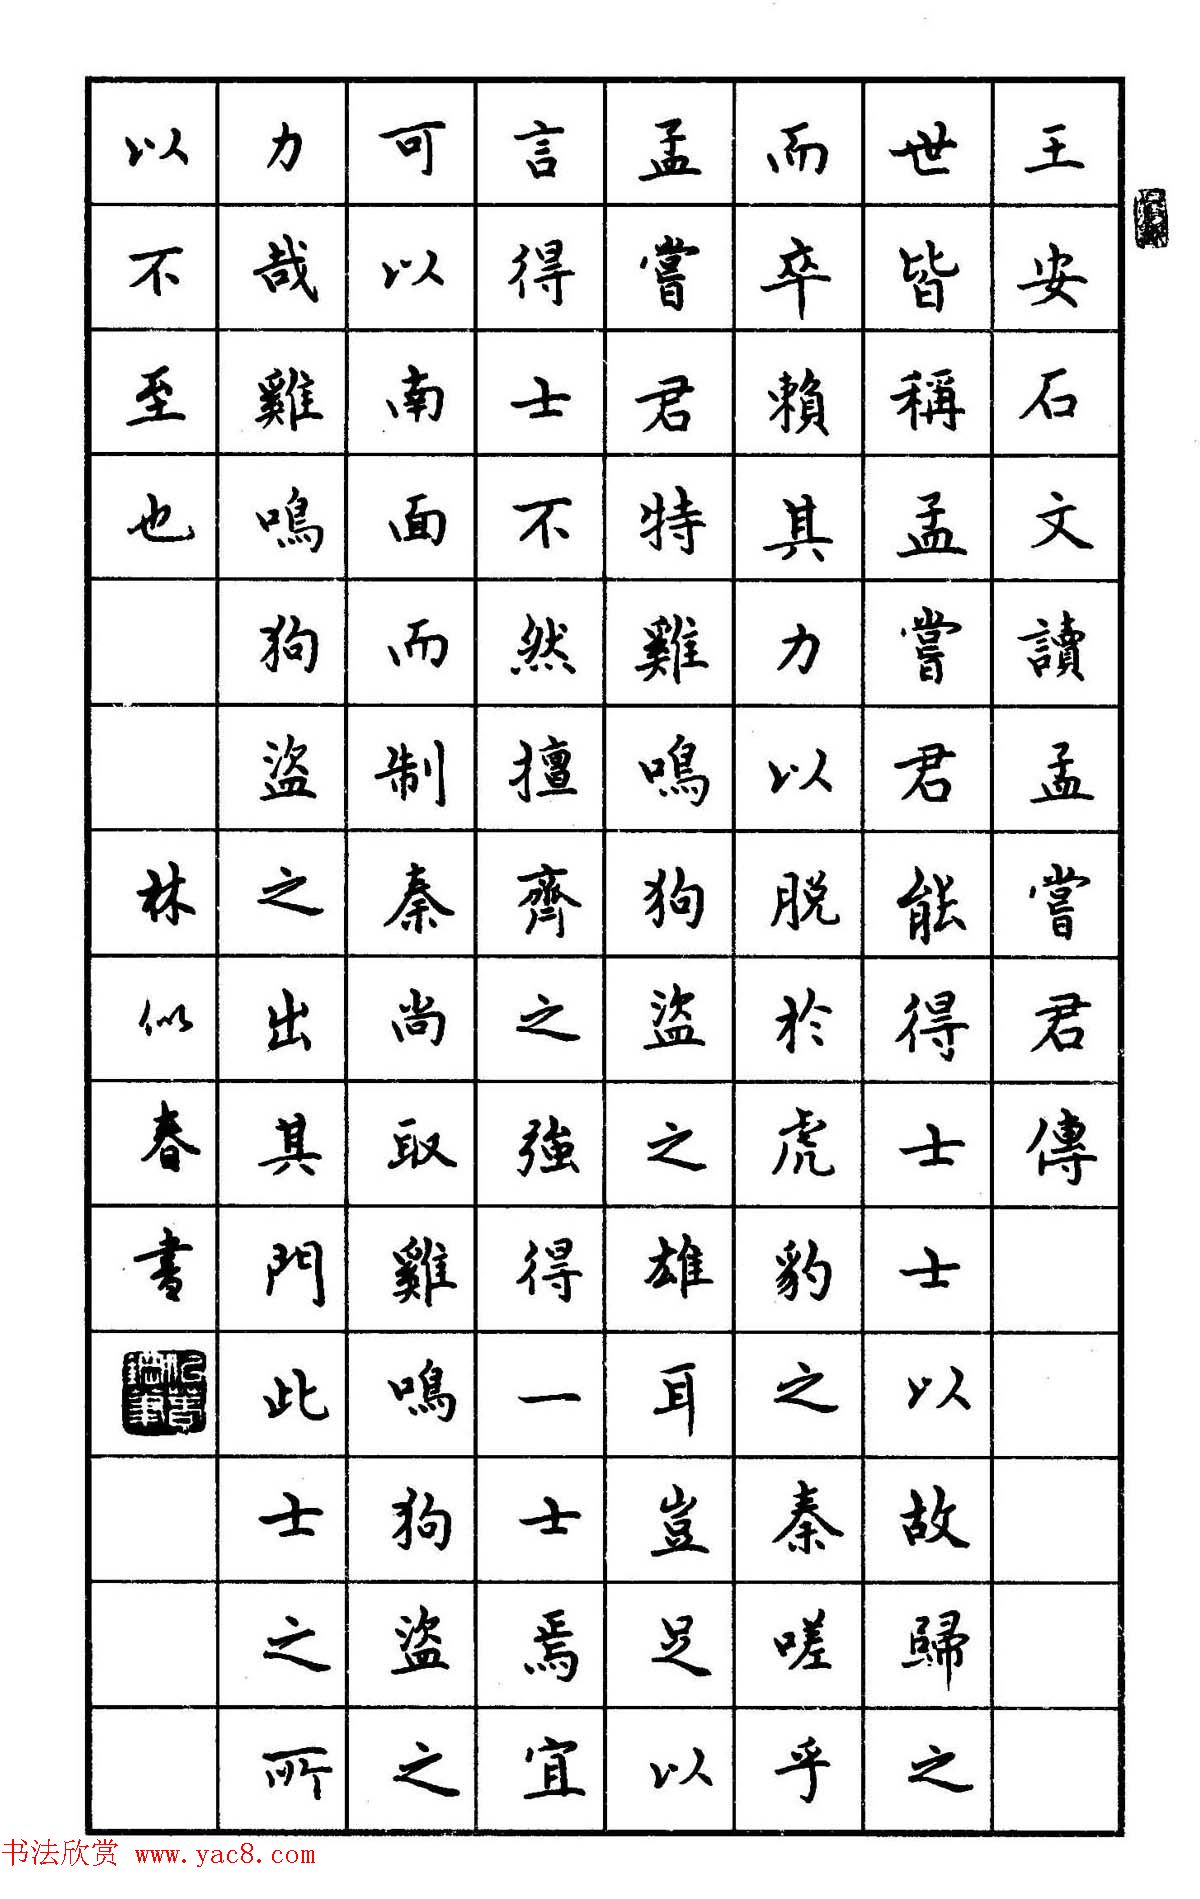 王安石文讀孟嘗君傳
世皆稱孟嘗君能得士士以故歸之
而卒賴其力以脱於虎豹之秦嗟乎
孟嘗君特雞鳴狗盜之雄耳豈足以
言得士不然擅齊之強得一士焉宜
可以南面而制秦尚取雞鳴狗盜之
力哉雞鳴狗盜之出其門此士之所
以不至也
林似春書
书法欣赏 www.yac8.com